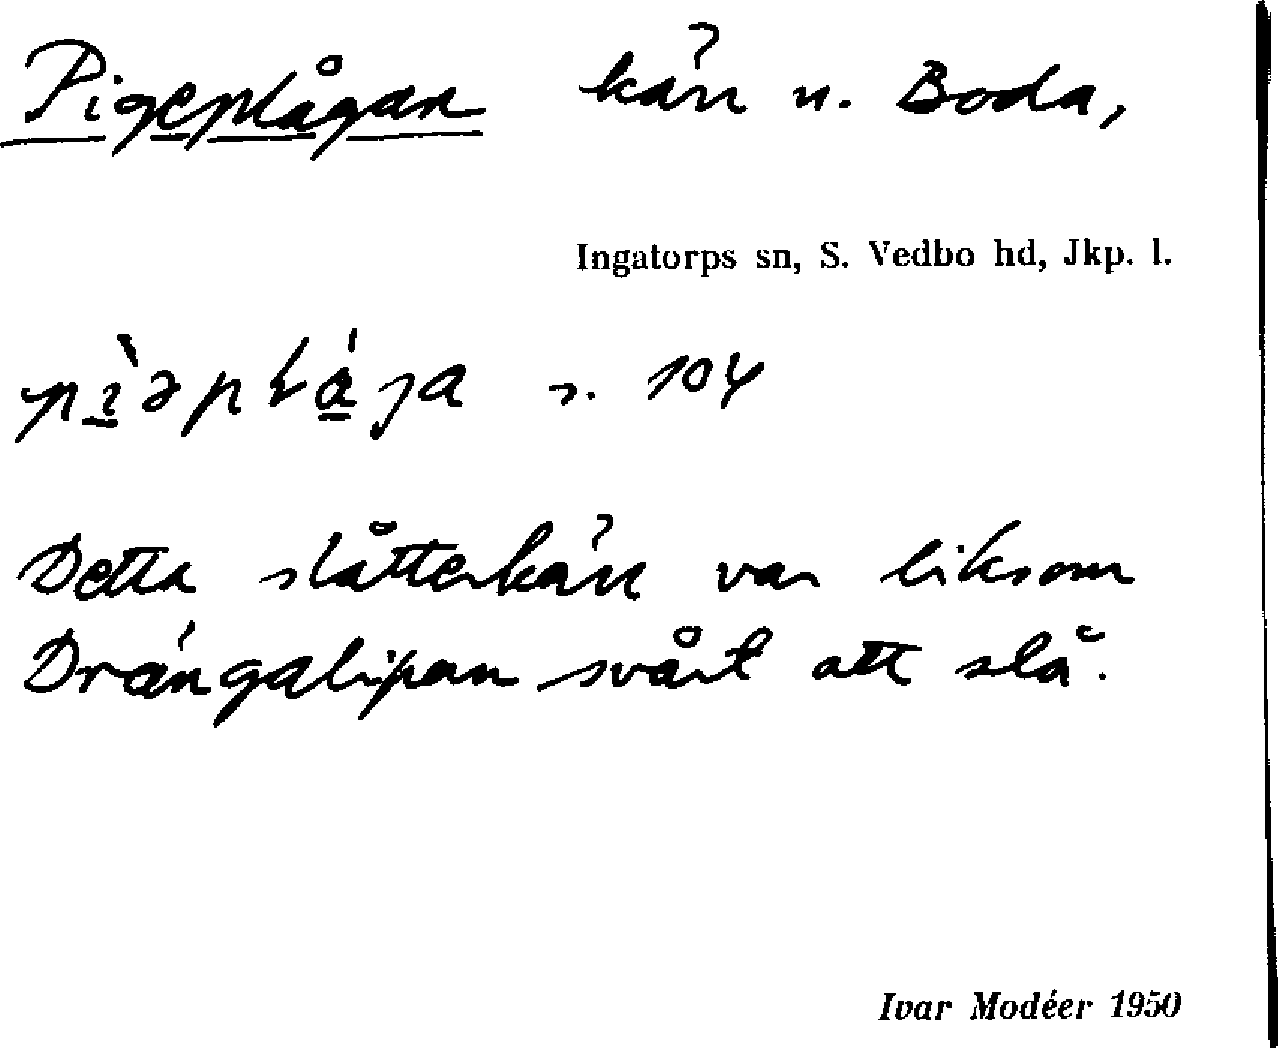 Pigeplågan kärr u. Boda,
Ingatorps sn, S. Vedbo hd, Jkp. l.
s. 104
Detta slåtterkärr var liksom
Drängalipan svårt att slå.
Ivar Modéer 1950